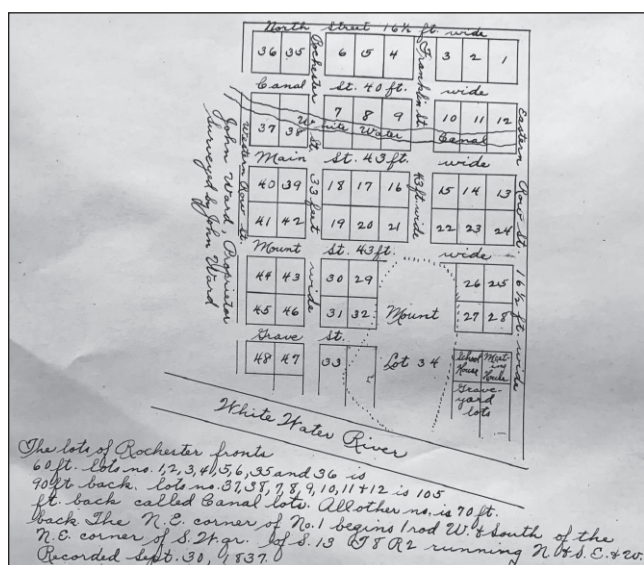 North Street 16½ ft. wide
36 35 Rochester St. 6 5 4 Franklin St. 3 2 1
Canal St. 40 ft. wide
7 8 9 10 11 12
White Water Canal
37 38
Main St. 43 ft. wide
40 39 18 17 16 15 14 13
33 feet wide
43 ft. wide
41 42 19 20 21 22 23 24
Mount St. 43 ft. wide
44 43 30 29 26 25
45 46 31 32 Mount 27 28
Grave St.
48 47 33 Lot 34
School House
Meet-in House
Grave-yard lots
Western Row St.
Eastern Row St. 16½ ft wide
John Ward, Proprietor
Surveyed by John Ward
White Water River
The lots of Rochester fronts
60 ft. lots no. 1, 2, 3, 4, 5, 6, 35 and 36 is
90 ft back. lots no. 37, 38, 7, 8, 9, 10, 11 + 12 is 105
ft. back called Canal lots. All other no. is 70 ft.
back. The N.E. corner of No. 1 begins 1 rod W. & South of the
N.E. corner of S.W. qr. of S. 13 T 8 R 2 running N. & S. E. & W.
Recorded Sept. 30, 1837.